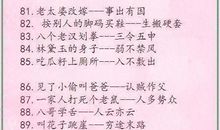 81. 老太婆改嫁---事出有因
82. 按别人的脚码买鞋---生搬硬套
83. 八个老汉划拳---三令五申
84. 林黛玉的身子---弱不禁风
85. 吃瓜籽上厕所---入不敷出
86. 见了小偷叫爸爸---认贼作父
87. 一家人打死个老鼠---人多势众
88. 八哥学舌---人云亦云
89. 叫花子跳崖---穷途末路